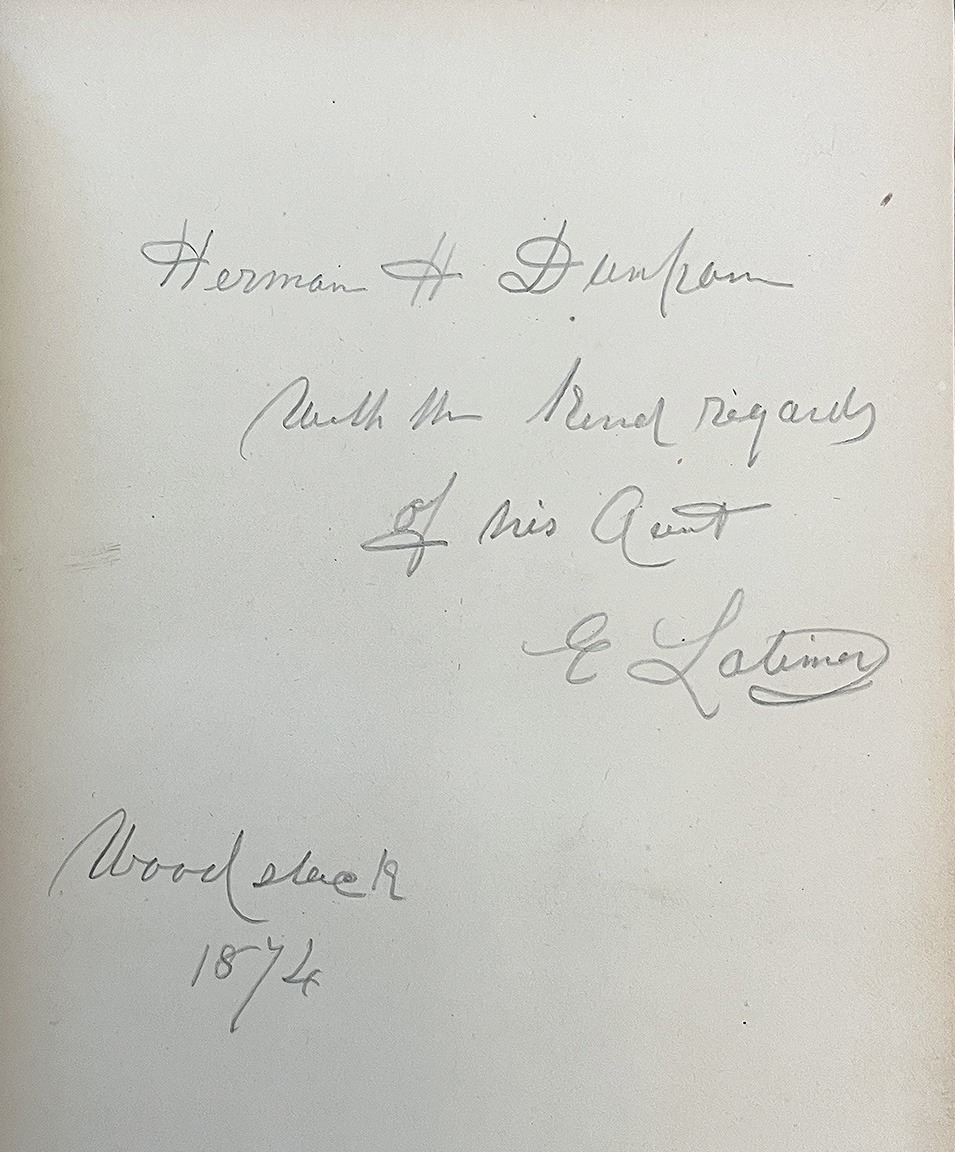 Herman H Dunham
With the Kind regards
of his Aunt
E Latimer
Woodstock
1874